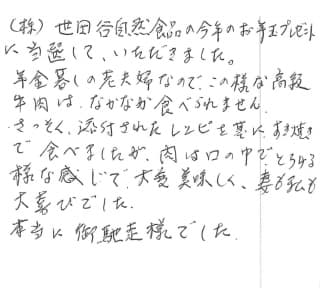 (株)世田谷自然食品の今年のお年玉プレゼント
に当選して、いただきました。
年金暮しの老夫婦なので、この様な高級
牛肉は、なかなか食べられません。
さっそく、添付されたレシピを基にすき焼き
で食べましたが、肉は口の中でとろける
様な感じで、大変美味しく、妻も私も
大喜びでした。
本当に御馳走様でした。